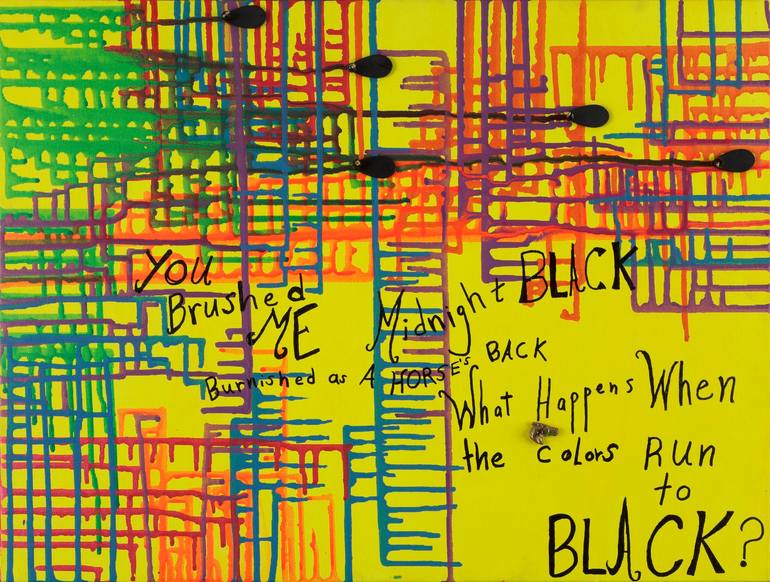 You
Brushed
ME Midnight BLACK
Burnished as A HORSE's BACK
What Happens When
the Colors Run
to
BLACK?